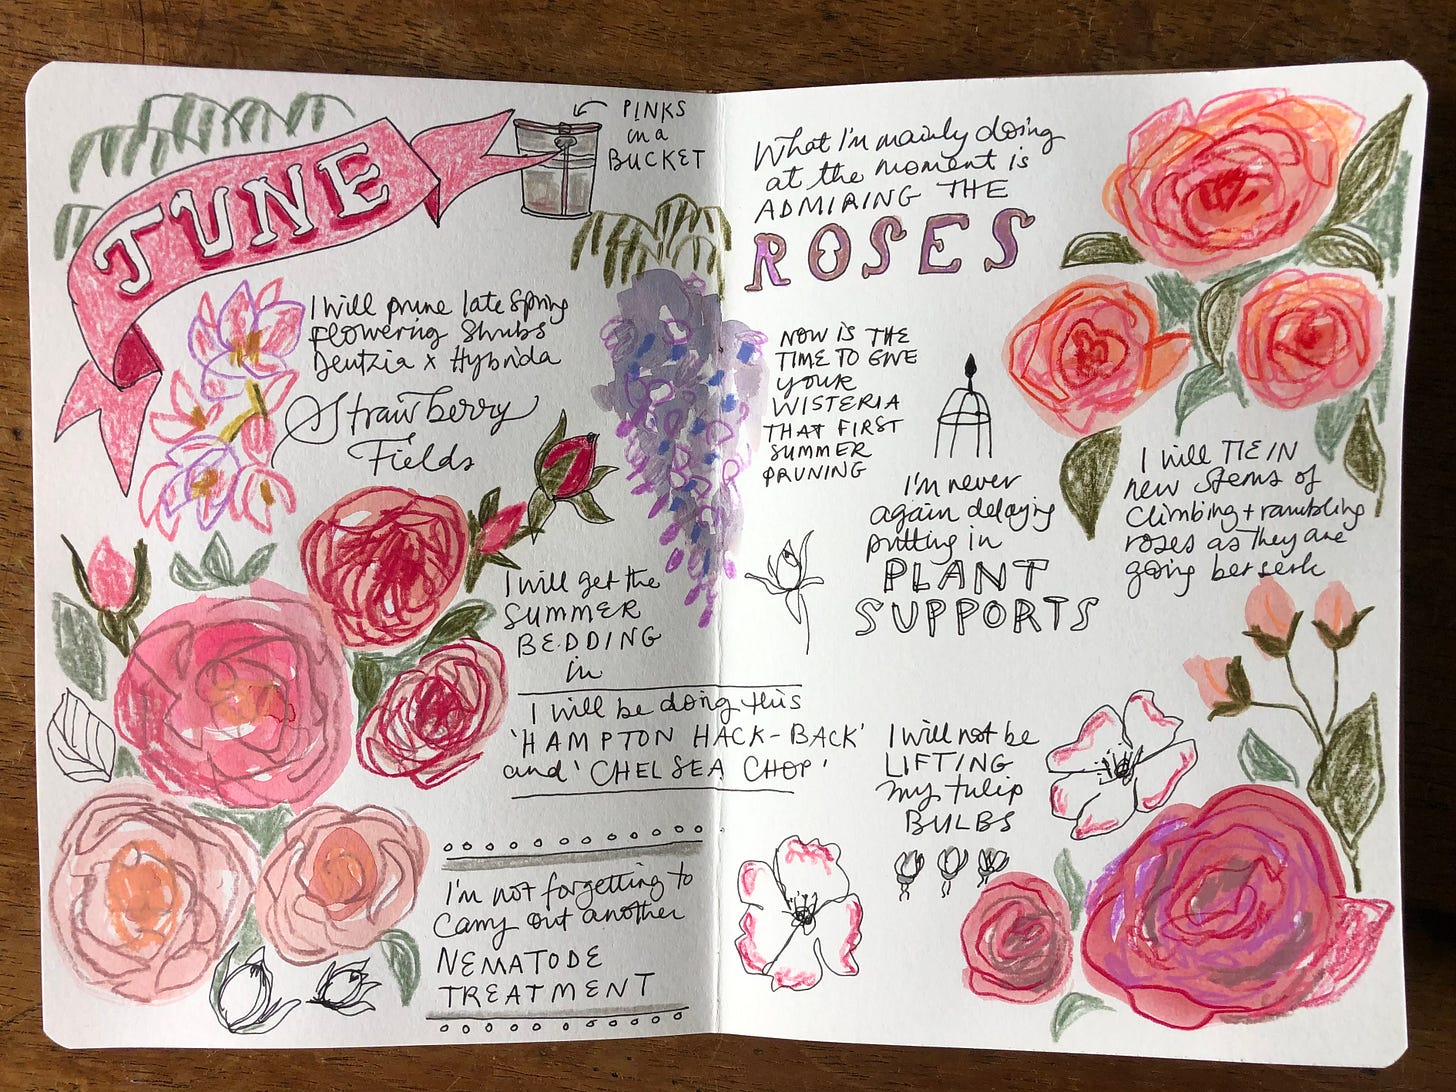 JUNE
PINKS
in a
BUCKET
I will prune late Spring
flowering Shrubs
Deutzia x Hybrida
Strawberry
Fields
I will get the
SUMMER
BEDDING
in
I will be doing this
'HAMPTON HACK-BACK'
and 'CHELSEA CHOP'
I'm not forgetting to
Carry out another
NEMATODE
TREATMENT
What I'm mainly doing
at the moment is
ADMIRING THE
ROSES
NOW IS THE
TIME TO GIVE
your
WISTERIA
THAT FIRST
SUMMER
PRUNING
I'm never
again delaying
putting in
PLANT
SUPPORTS
I will TIE IN
new Stems of
Climbing + rambling
roses as they are
going berserk
I will not be
LIFTING
my tulip
BULBS